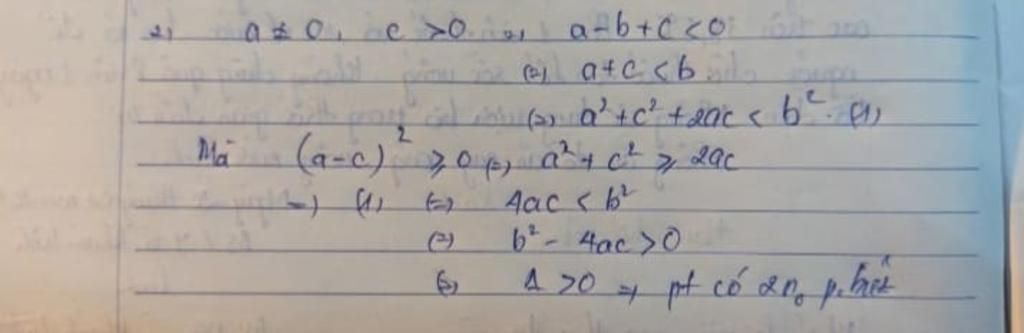 2) a ≠ 0, c > 0 2) a - b + c < 0
(=) a + c < b
(=) a² + c² + 2ac < b². (1)
Mà (a - c)² ≥ 0 (=) a² + c² ≥ 2ac
→ (1) (=) 4ac < b²
(=) b² - 4ac > 0
(=) Δ > 0 => pt có 2n₀ p.biệt